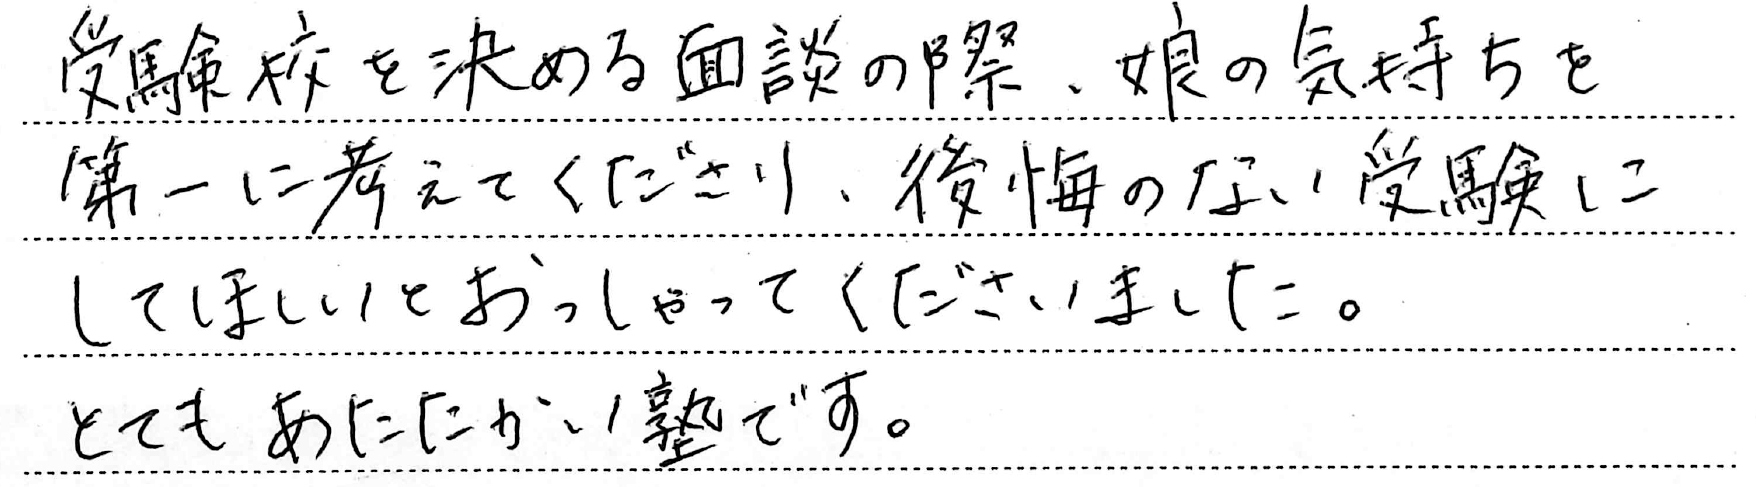 受験校を決める面談の際、娘の気持ちを
第一に考えてくださり、後悔のない受験に
してほしいとおっしゃってくださいました。
とてもあたたかい塾です。